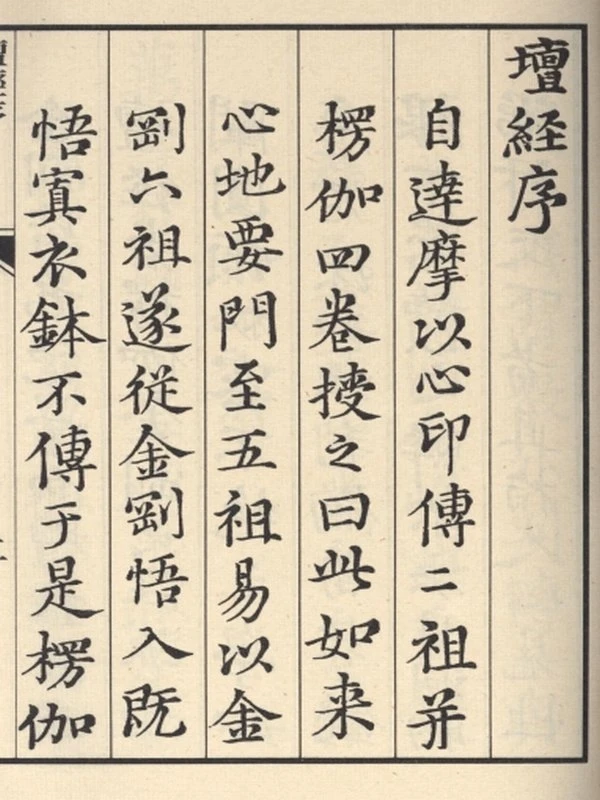 壇経序
自達摩以心印傳二祖并
楞伽四卷授之曰此如来
心地要門至五祖易以金
剛六祖遂從金剛悟入既
悟寘衣鉢不傳于是楞伽